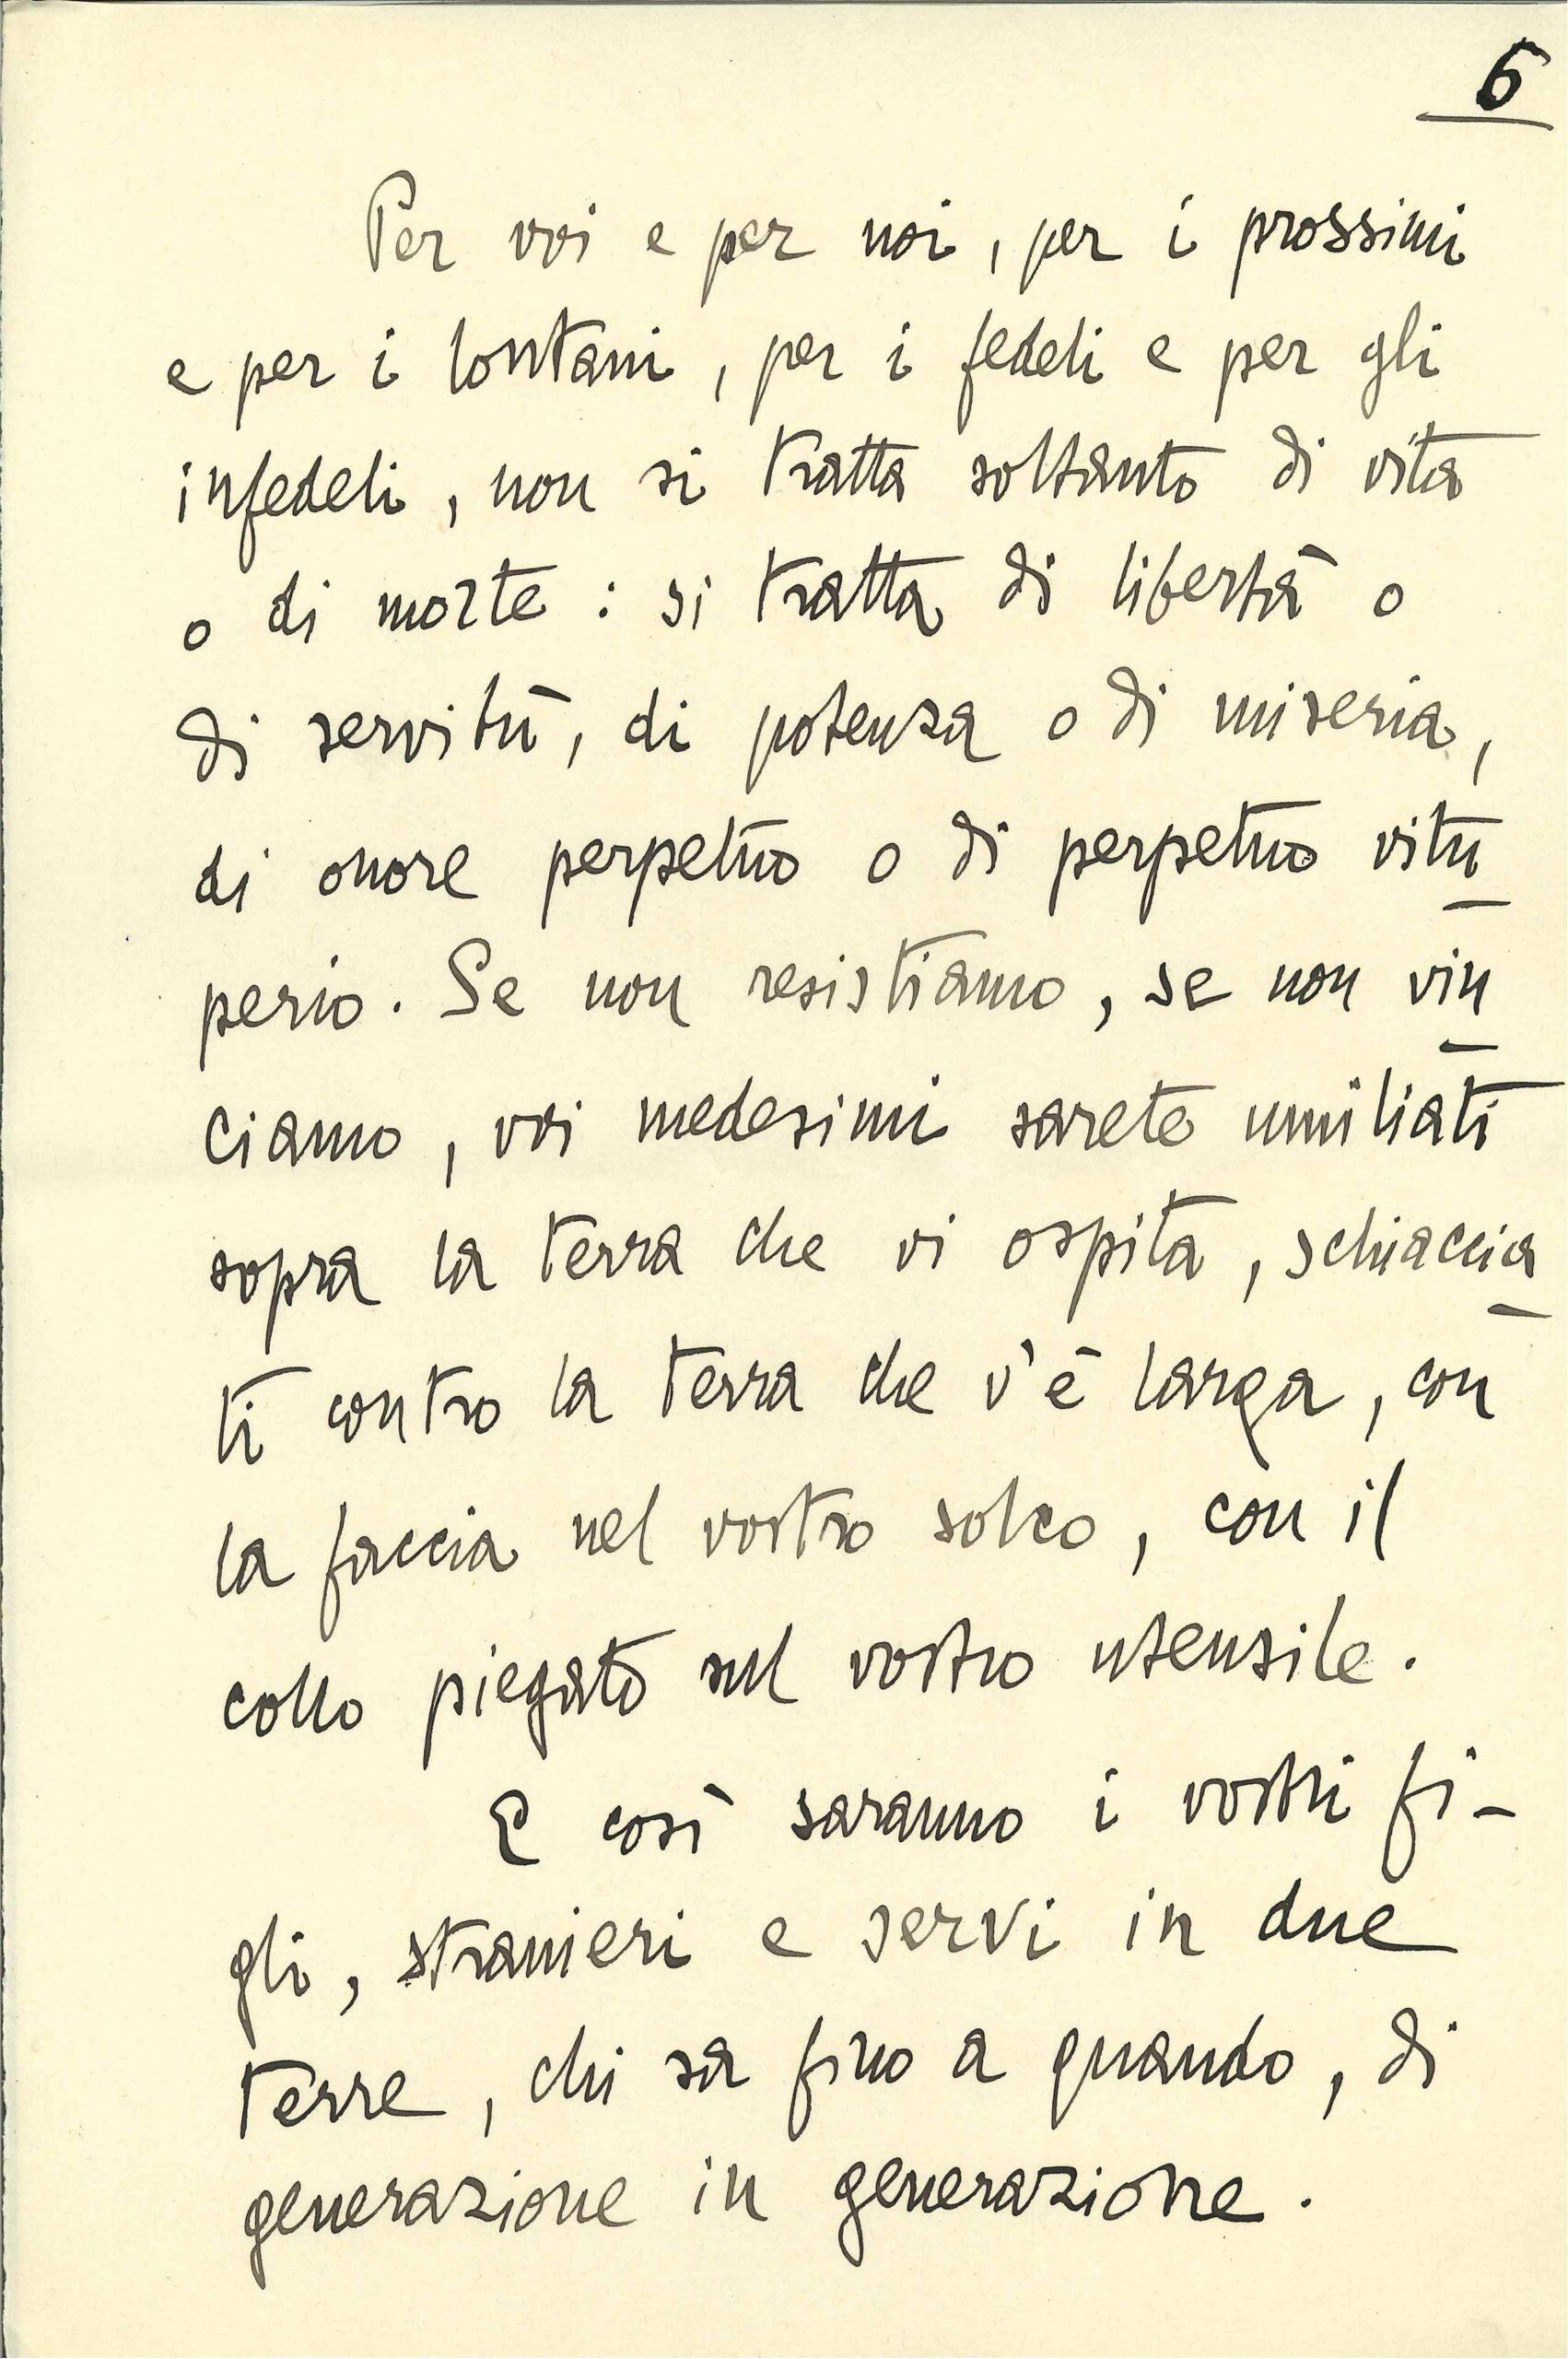 6
Per voi e per noi, per i prossimi
e per i lontani, per i fedeli e per gli
infedeli, non si tratta soltanto di vita
o di morte: si tratta di libertà o
di servitù, di potenza o di miseria,
di onore perpetuo o di perpetuo vitu-
perio. Se non resistiamo, se non vin-
ciamo, voi medesimi sarete umiliati
sopra la terra che vi ospita, schiaccia-
ti contro la terra che v'è larga, con
la faccia nel vostro solco, con il
collo piegato sul vostro utensile.
E così saranno i vostri fi-
gli, stranieri e servi in due
terre, chi sa fino a quando, di
generazione in generazione.